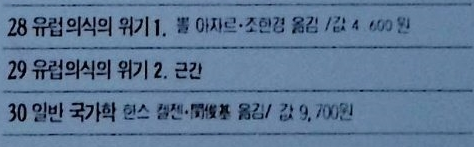 28 유럽의식의 위기 1. 뽈 아자르·조한경 옮김 /값 4,600원
29 유럽의식의 위기 2. 근간
30 일반 국가학 한스 켈젠·閔俊基 옮김/ 값 9,700원